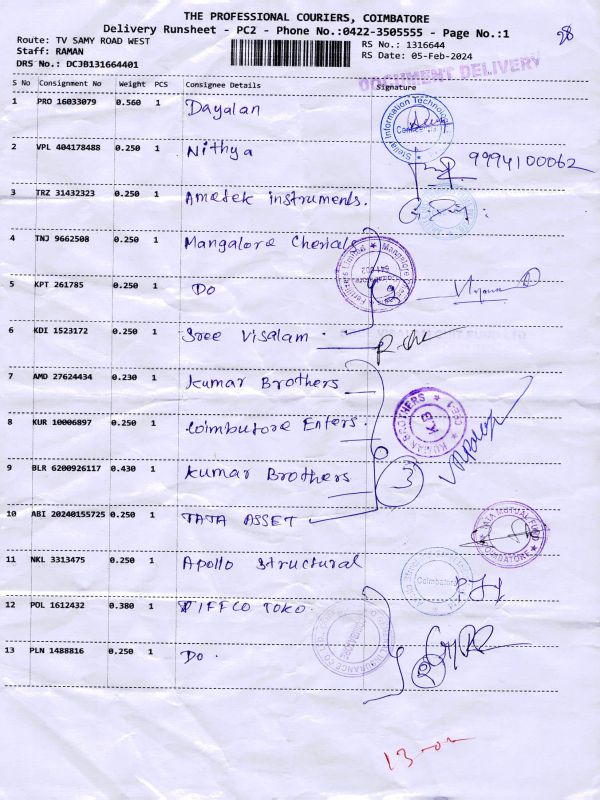 THE PROFESSIONAL COURIERS, COIMBATORE
Delivery Runsheet - PC2 - Phone No.:0422-3505555 - Page No.:1
28
Route: TV SAMY ROAD WEST
RS No.: 1316644
Staff: RAMAN
RS Date: 05-Feb-2024
DRS No.: DCJB131664401
DOCUMENT DELIVERY
S No Consignment No Weight PCS Consignee Details Signature
1 PRO 16033079 0.560 1 Dayalan
Stellar Information Technology
2 VPL 404178488 0.250 1 Nithya
9994100062
3 TRZ 31432323 0.250 1 Ametek instruments.
4 TNJ 9662508 0.250 1 Mangalore Chemicals
5 KPT 261785 0.250 1 Do
6 KDI 1523172 0.250 1 Sree Visalam
7 AMD 27624434 0.230 1 Kumar Brothers
8 KUR 10006897 0.250 1 Coimbutore Enters.
KUMAR BROTHERS
K.B
CBE-1
9 BLR 6200926117 0.430 1 Kumar Brothers
3
10 ABI 20240155725 0.250 1 TATA ASSET
TATA MUTUAL FUND
COIMBATORE
11 NKL 3313475 0.250 1 Apollo Structural
Coimbatore
12 POL 1612432 0.380 1 IFFCO TOKO.
13 PLN 1488816 0.250 1 Do.
2